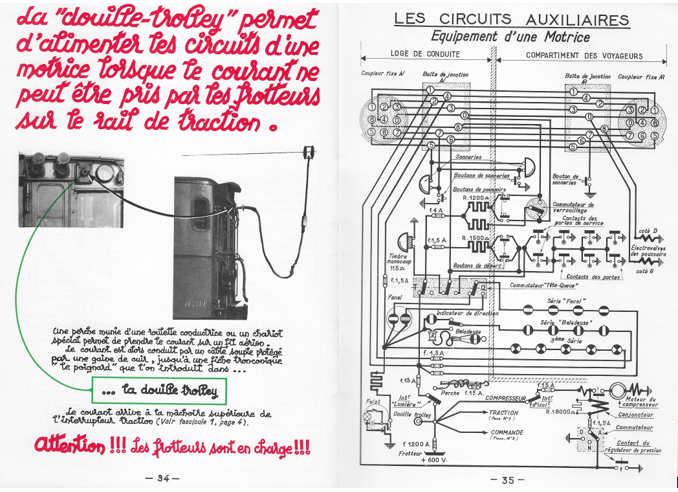 La "douille-trolley" permet
d'alimenter les circuits d'une
motrice lorsque le courant ne
peut être pris par les frotteurs
sur le rail de traction.
Une perche munie d'une roulette conductrice ou un chariot
spécial permet de prendre le courant sur un fil aérien.
Le courant est alors conduit par un câble souple protégé
par une gaine de cuir, jusqu'à une fiche tronconique
"le poignard" que l'on introduit dans ...
... la douille trolley
Le courant arrive à la mâchoire supérieure de
l'interrupteur traction (Voir fascicule 1, page 4).
Attention !!! Les frotteurs sont en charge !!!
— 34 —
LES CIRCUITS AUXILIAIRES
Equipement d'une Motrice
LOGE DE CONDUITE
COMPARTIMENT DES VOYAGEURS
Coupleur fixe AV
Boîte de jonction AV
Boîte de jonction AR
Coupleur fixe AR
Sonneries
Boutons de sonneries
Bouton de sonneries
Boutons de poussoirs
R.1200 Ω
f.4A
Commutateur de verrouillage
Contacts des portes de service
R.1500 Ω
f.1,5A
Timbre monocoup
115 Ω
Boutons de départ
côté D
Electrovalves des poussoirs
côté G
Contacts des portes
f.1,5A
Commutateur "Tête-Queue"
Fanal
Série "Fanal"
Indicateur de direction
Série "Baladeuse"
Baladeuse
3ème Série
f.1,5A
f.15A
f.15A
Perche
f.15A
COMPRESSEUR
Intr "Lumière"
Intr d'isolt
R.18000 Ω
Moteur du compresseur
Conjoncteur
Fanal
Douille trolley
TRACTION
(Fasc. N°1)
COMMANDE
(Fasc. N°2)
Commutateur
D
A
N
Contact du régulateur de pression
f 1200 A
Frotteur
+ 600 V.
— 35 —